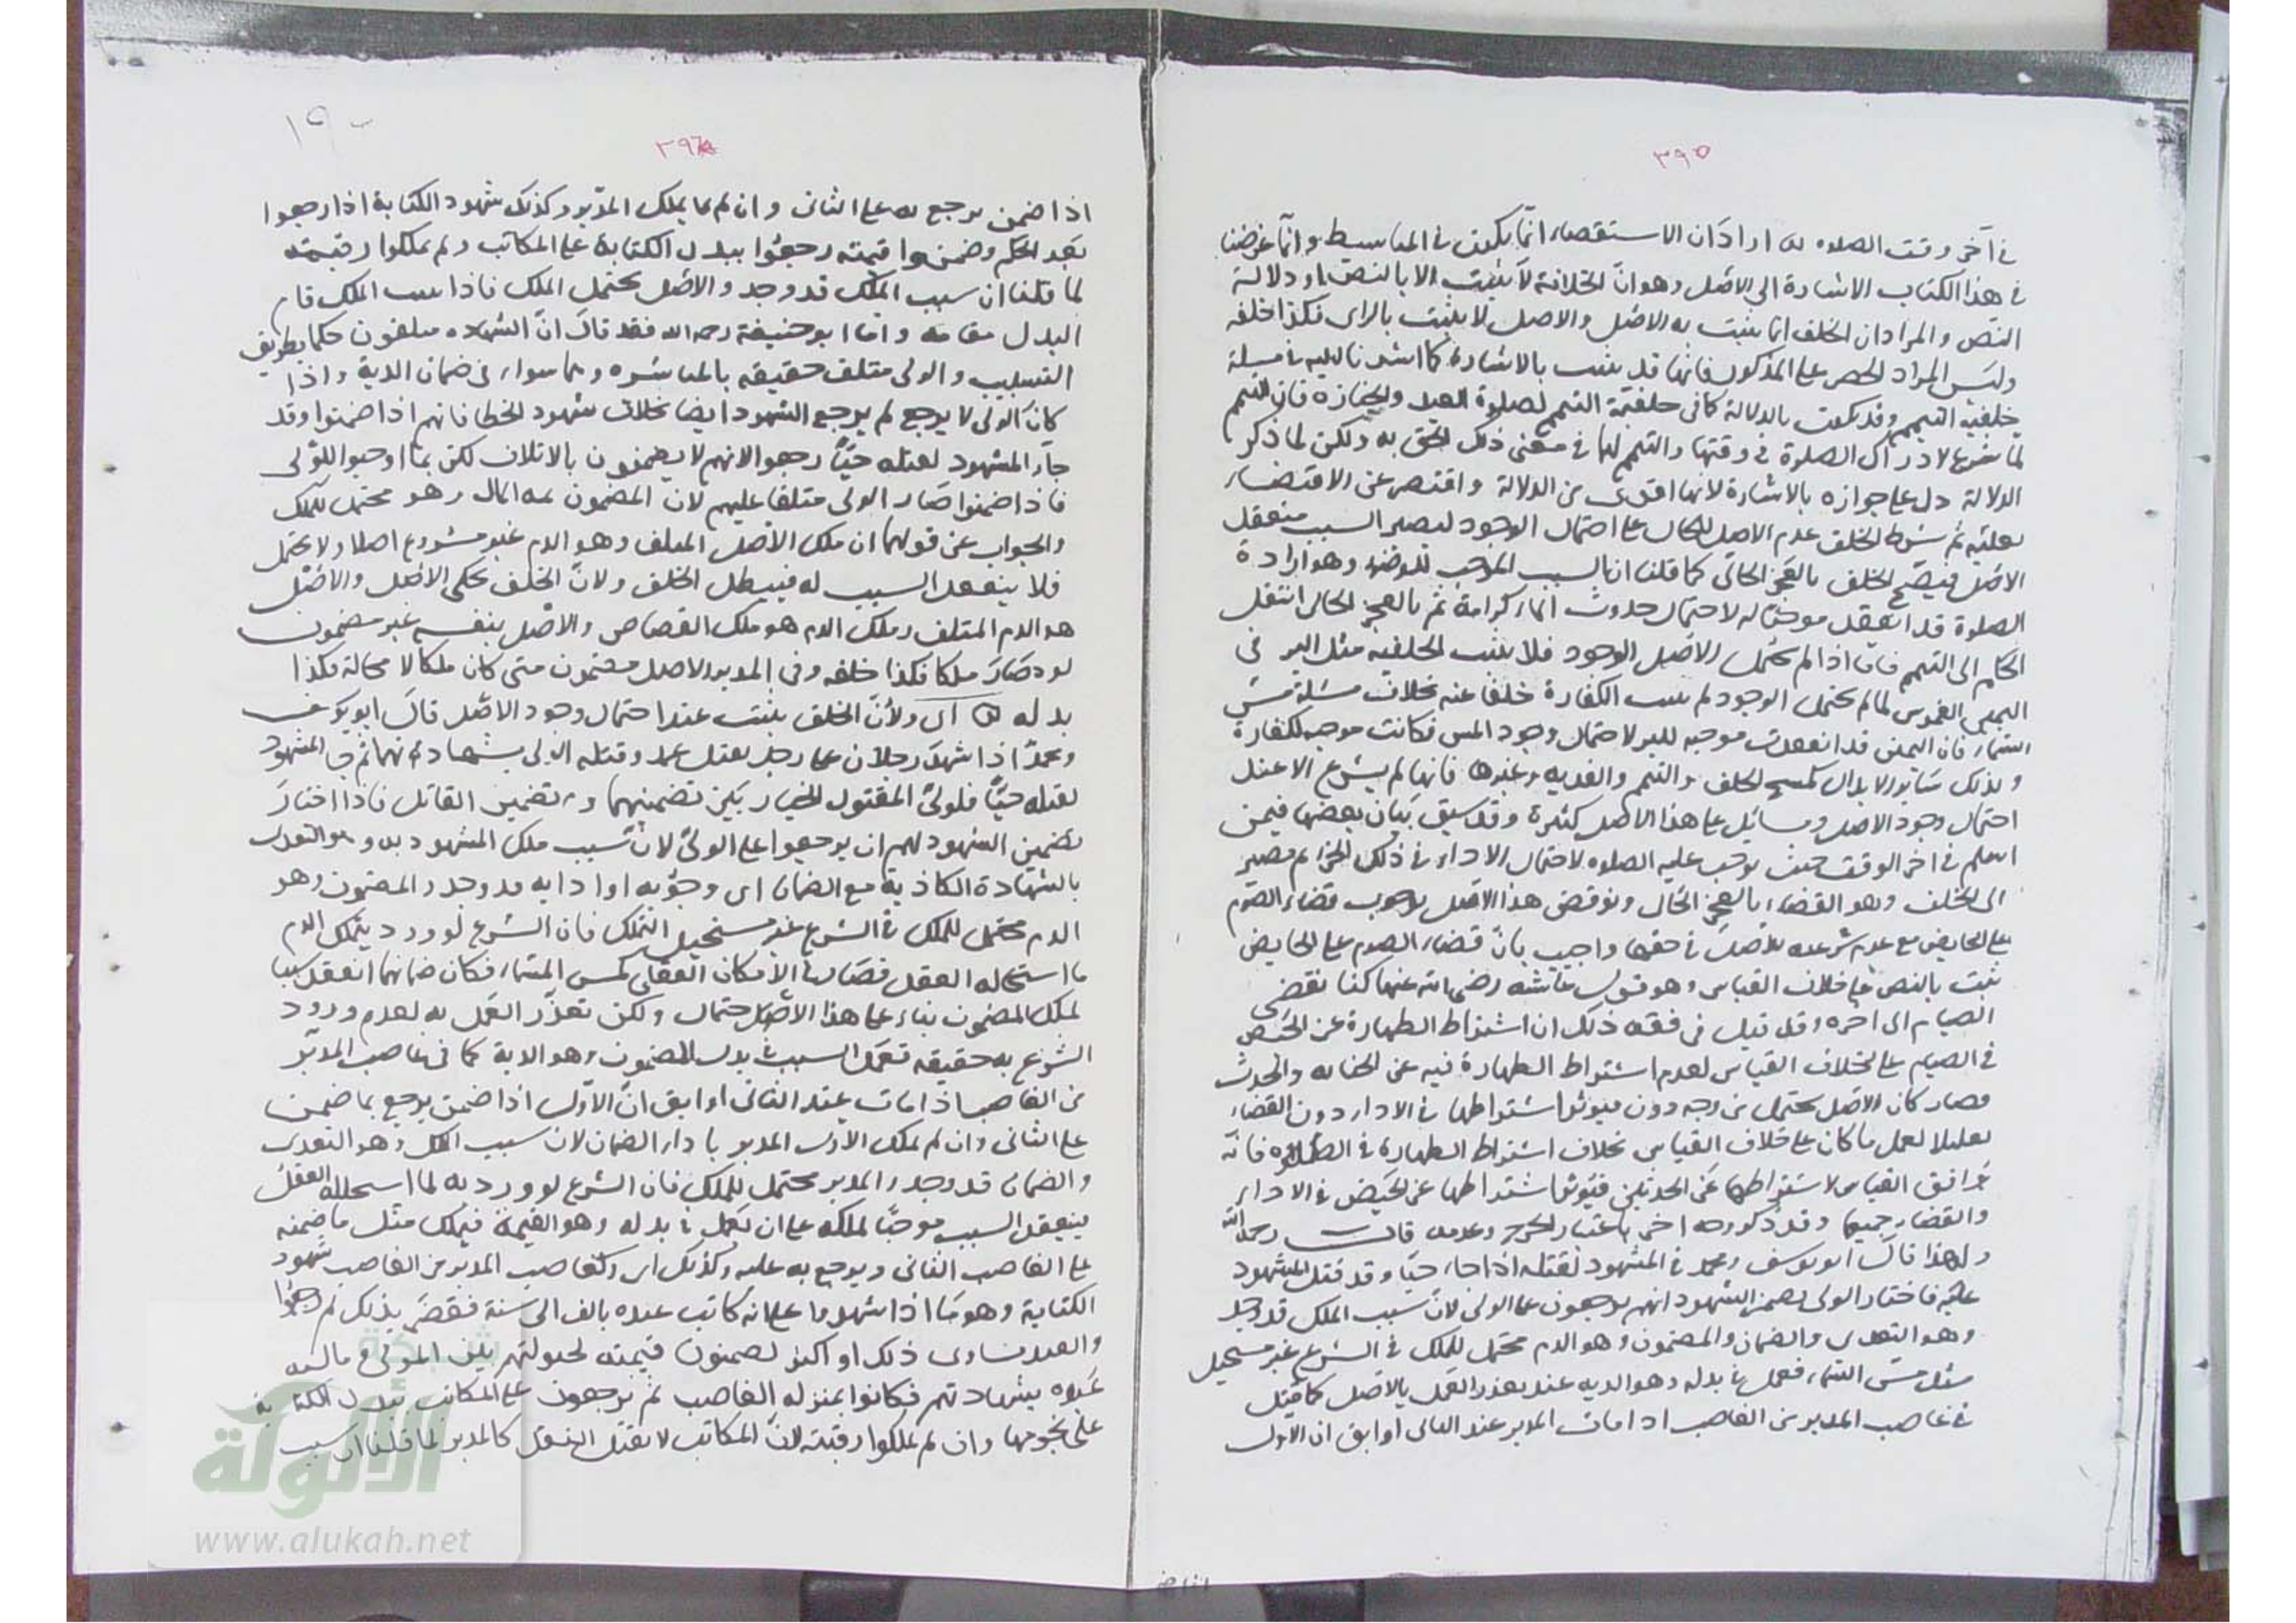 ٣٩٥
في آخر وقت الصلاه اراد ان الاستقصاء انما يكون في المباسيط وانما غرضنا
في هذا الكتاب الاشارة الى الاصل وهو ان الخلافة لا تثبت الا بالنص او دلالة
النص والمراد ان الخلف انما يثبت به الاصل والاصل لا يثبت بالراى فكذا خلفه
وليس المراد الحصر على المذكور فانها قد يثبت بالاشارة كما اشرنا اليه في مسئلة
خلفية التيمم وقد يكون بالدلالة كما في خلفية التيمم لصلوة العيد والجنازه فان التيمم
لما شرع لادراك الصلوة في وقتها والتيمم لها في معنى ذلك الحق به ولكن لما ذكر
الدلالة دل على جوازه بالاشارة لانها اقوى من الدلالة واقتصر عن الاقتضاء
لعليته ثم شرط الخلف عدم الاصل للحال على احتمال الوجود ليصير السبب منعقدا
الاصل فيصح الخلف بالعجز الحالى كما قلنا ان السبب الموجب للوضوء وهو ارادة
الصلوة قد انعقد موجبا له لاحتمال حدوث الماء كرامة ثم بالعجز الحالى انتقل
الحكم الى التيمم فاما اذا لم يحتمل الاصل الوجود فلا يثبت الخلفيه مثل البر في
اليمين الغموس لما لم يحتمل الوجود لم يثبت الكفارة خلفا عنه بخلاف مسئلة مس
السماء فان اليمين قد انعقدت موجبه للبر لاحتمال وجود المس فكانت موجبه للكفارة
وكذلك سائر الابدال كمسح الخف والتيمم والفديه وغيرها فانها لم يشرع الا عند
احتمال وجود الاصل ومسائل على هذا الاصل كثيرة وقد سبق بيان بعضها فيمن
اسلم في اخر الوقت حيث يوجب عليه الصلوه لاحتمال الاداء في ذلك الجزء ثم يصير
الى الخلف وهو القضاء بالعجز الحال ونوقض هذا الاصل بوجوب قضاء الصوم
على الحايض مع عدم شرعيه الاصل في حقها واجيب بان قضاء الصوم على الحايض
ثبت بالنص على خلاف القياس وهو قول عائشه رضى الله عنها كنا نقضى
الصيام الى اخره وقد قيل في فقه ذلك ان اشتراط الطهارة عن الحيض
في الصيام على خلاف القياس لعدم اشتراط الطهارة فيه عن الجنابه والحدث
فصار كان الاصل يحتمل من وجه دون فيوثر اشتراطها في الاداء دون القضاء
تعليلا لعمل ما كان على خلاف القياس بخلاف اشتراط الطهارة في الصلوه فانه
توافق القياس لاشتراطها عن الحدثين فيوثر اشتراطها عن الحيض في الاداء
والقضاء جميعا وقد ذكر وجه اخر باعتبار الحرج وعدمه قال رحمه الله
ولهذا قال ابو يوسف ومحمد في المشهود بقتله اذا جاء حيا وقد قتل المشهود
عليه فاختار الولى تضمين الشهود انهم يرجعون على الولى لان سبب الملك قد وجد
وهو التعدى والضمان والمضمون وهو الدم محتمل للملك في الشرع غير مستحيل
مثل مس السماء فعمل في بدله وهو الديه عند تعذر العمل بالاصل كما قيل
في غاصب المدبر من الغاصب اذا مات المدبر عند الثانى او ابق ان الاول
١٩٠
٣٩٦
اذا ضمن يرجع به على الثانى وان لم يملك المدبر وكذلك شهود الكتابة اذا رجعوا
بعد الحكم وضمنوا قيمته رجعوا ببدل الكتابة على المكاتب ولم يملكوا رقبته
لما قلنا ان سبب الملك قد وجد والاصل يحتمل الملك فاذا سبب الملك قام
البدل مقامه واما ابو حنيفة رحمه الله فقد قال ان الشهاده متلفون حكما بطريق
التسبيب والولى متلف حقيقه بالمباشره وهما سواء في ضمان الدية واذا
كان الولى لا يرجع لم يرجع الشهود ايضا بخلاف شهود الخطا فانهم اذا ضمنوا وقد
جاء المشهود بقتله حيا رجعوا لانهم لا يضمنون بالاتلاف لكن بما اوجبوا للولى
فاذا ضمنوا صار الولى متلفا عليهم لان المضمون ثمه المال وهو محتمل للملك
والجواب عن قولهما ان ملك الاصل المتلف وهو الدم غير مشروع اصلا ولا يحتمل
فلا ينعقد السبب له فيبطل الخلف ولان الخلف يحكى الاصل والاصل
هو الدم المتلف وملك الدم هو ملك القصاص والاصل بنفسه غير مضمون
لو صار ملكا فكذا خلفه وفى المدبر الاصل مضمون متى كان ملكا لا محالة فكذا
بدله اى ولان الخلف يثبت عند احتمال وجود الاصل قال ابو يوسف
ومحمد اذا شهد رجلان على رجل بقتل عمد وقتله الولى بشهادتهما ثم جاء المشهود
بقتله حيا فلولى المقتول الخيار بين تضمينهما وبين تضمين القاتل فاذا اختار
تضمين الشهود لهم ان يرجعوا على الولى لان سبب ملك المشهود به وهو التعدى
بالشهادة الكاذبة مع الضمان اى وجوبه او ادايه قد وجد والمضمون وهو
الدم محتمل للملك في الشرع غير مستحيل التملك فان الشرع لو ورد بتملك الدم
ما استحاله العقل فصار في الامكان العقلى كمس السماء فكان ضمانهما انعقد سببا
لملك المضمون بناء على هذا الاصل احتمال ولكن تعذر العمل به لعدم ورود
الشرع به حقيقه فعمل السبب في بدل المضمون وهو الدية كما في غاصب المدبر
من الغاصب اذا مات عند الثانى او ابق ان الاول اذا ضمن يرجع بما ضمن
على الثانى وان لم يملك الاول المدبر باداء الضمان لان سبب الملك وهو التعدى
والضمان قد وجد والمدبر محتمل للملك فان الشرع لو ورد به لما استحاله العقل
ينعقد السبب موجبا لملكه على ان يعمل في بدله وهو القيمة فيملك مثل ما ضمنه
على الغاصب الثانى ويرجع به عليه وكذلك اى وكغاصب المدبر من الغاصب شهود
الكتابة وهو ما اذا شهدوا على انه كاتب عبده بالف الى سنة فقضى بذلك ثم رجعوا
والعبد يساوى ذلك او اكثر يضمنون قيمته لحيلولتهم بين المولى ومالية
عبده بشهادتهم فكانوا بمنزله الغاصب ثم يرجعون على المكاتب ببدل الكتابة
على نجومها وان لم يملكوا رقبته لان المكاتب لا يقبل النقل كالمدبر لما قلنا ان سبب
الألوكة
www.alukah.net